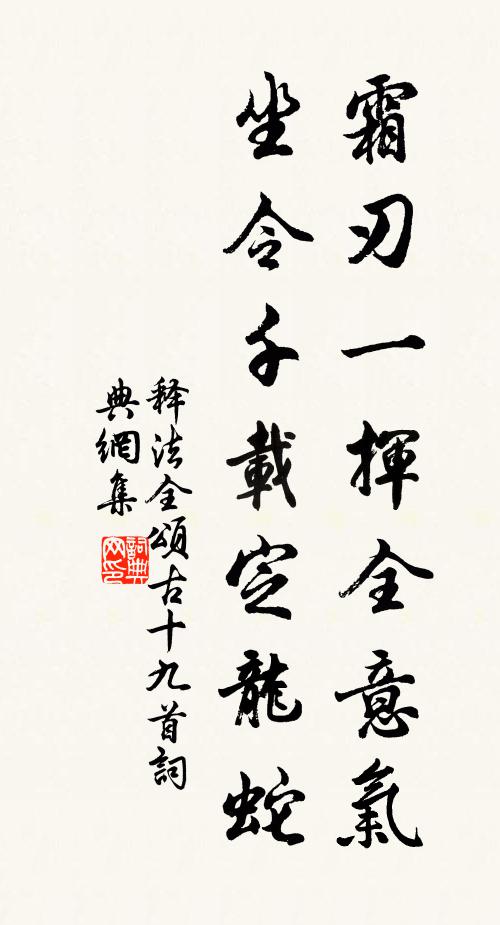 霜刃一揮全意氣
坐令千載定龍蛇
释法全頌古十九首詞
典網集
詞典
网印